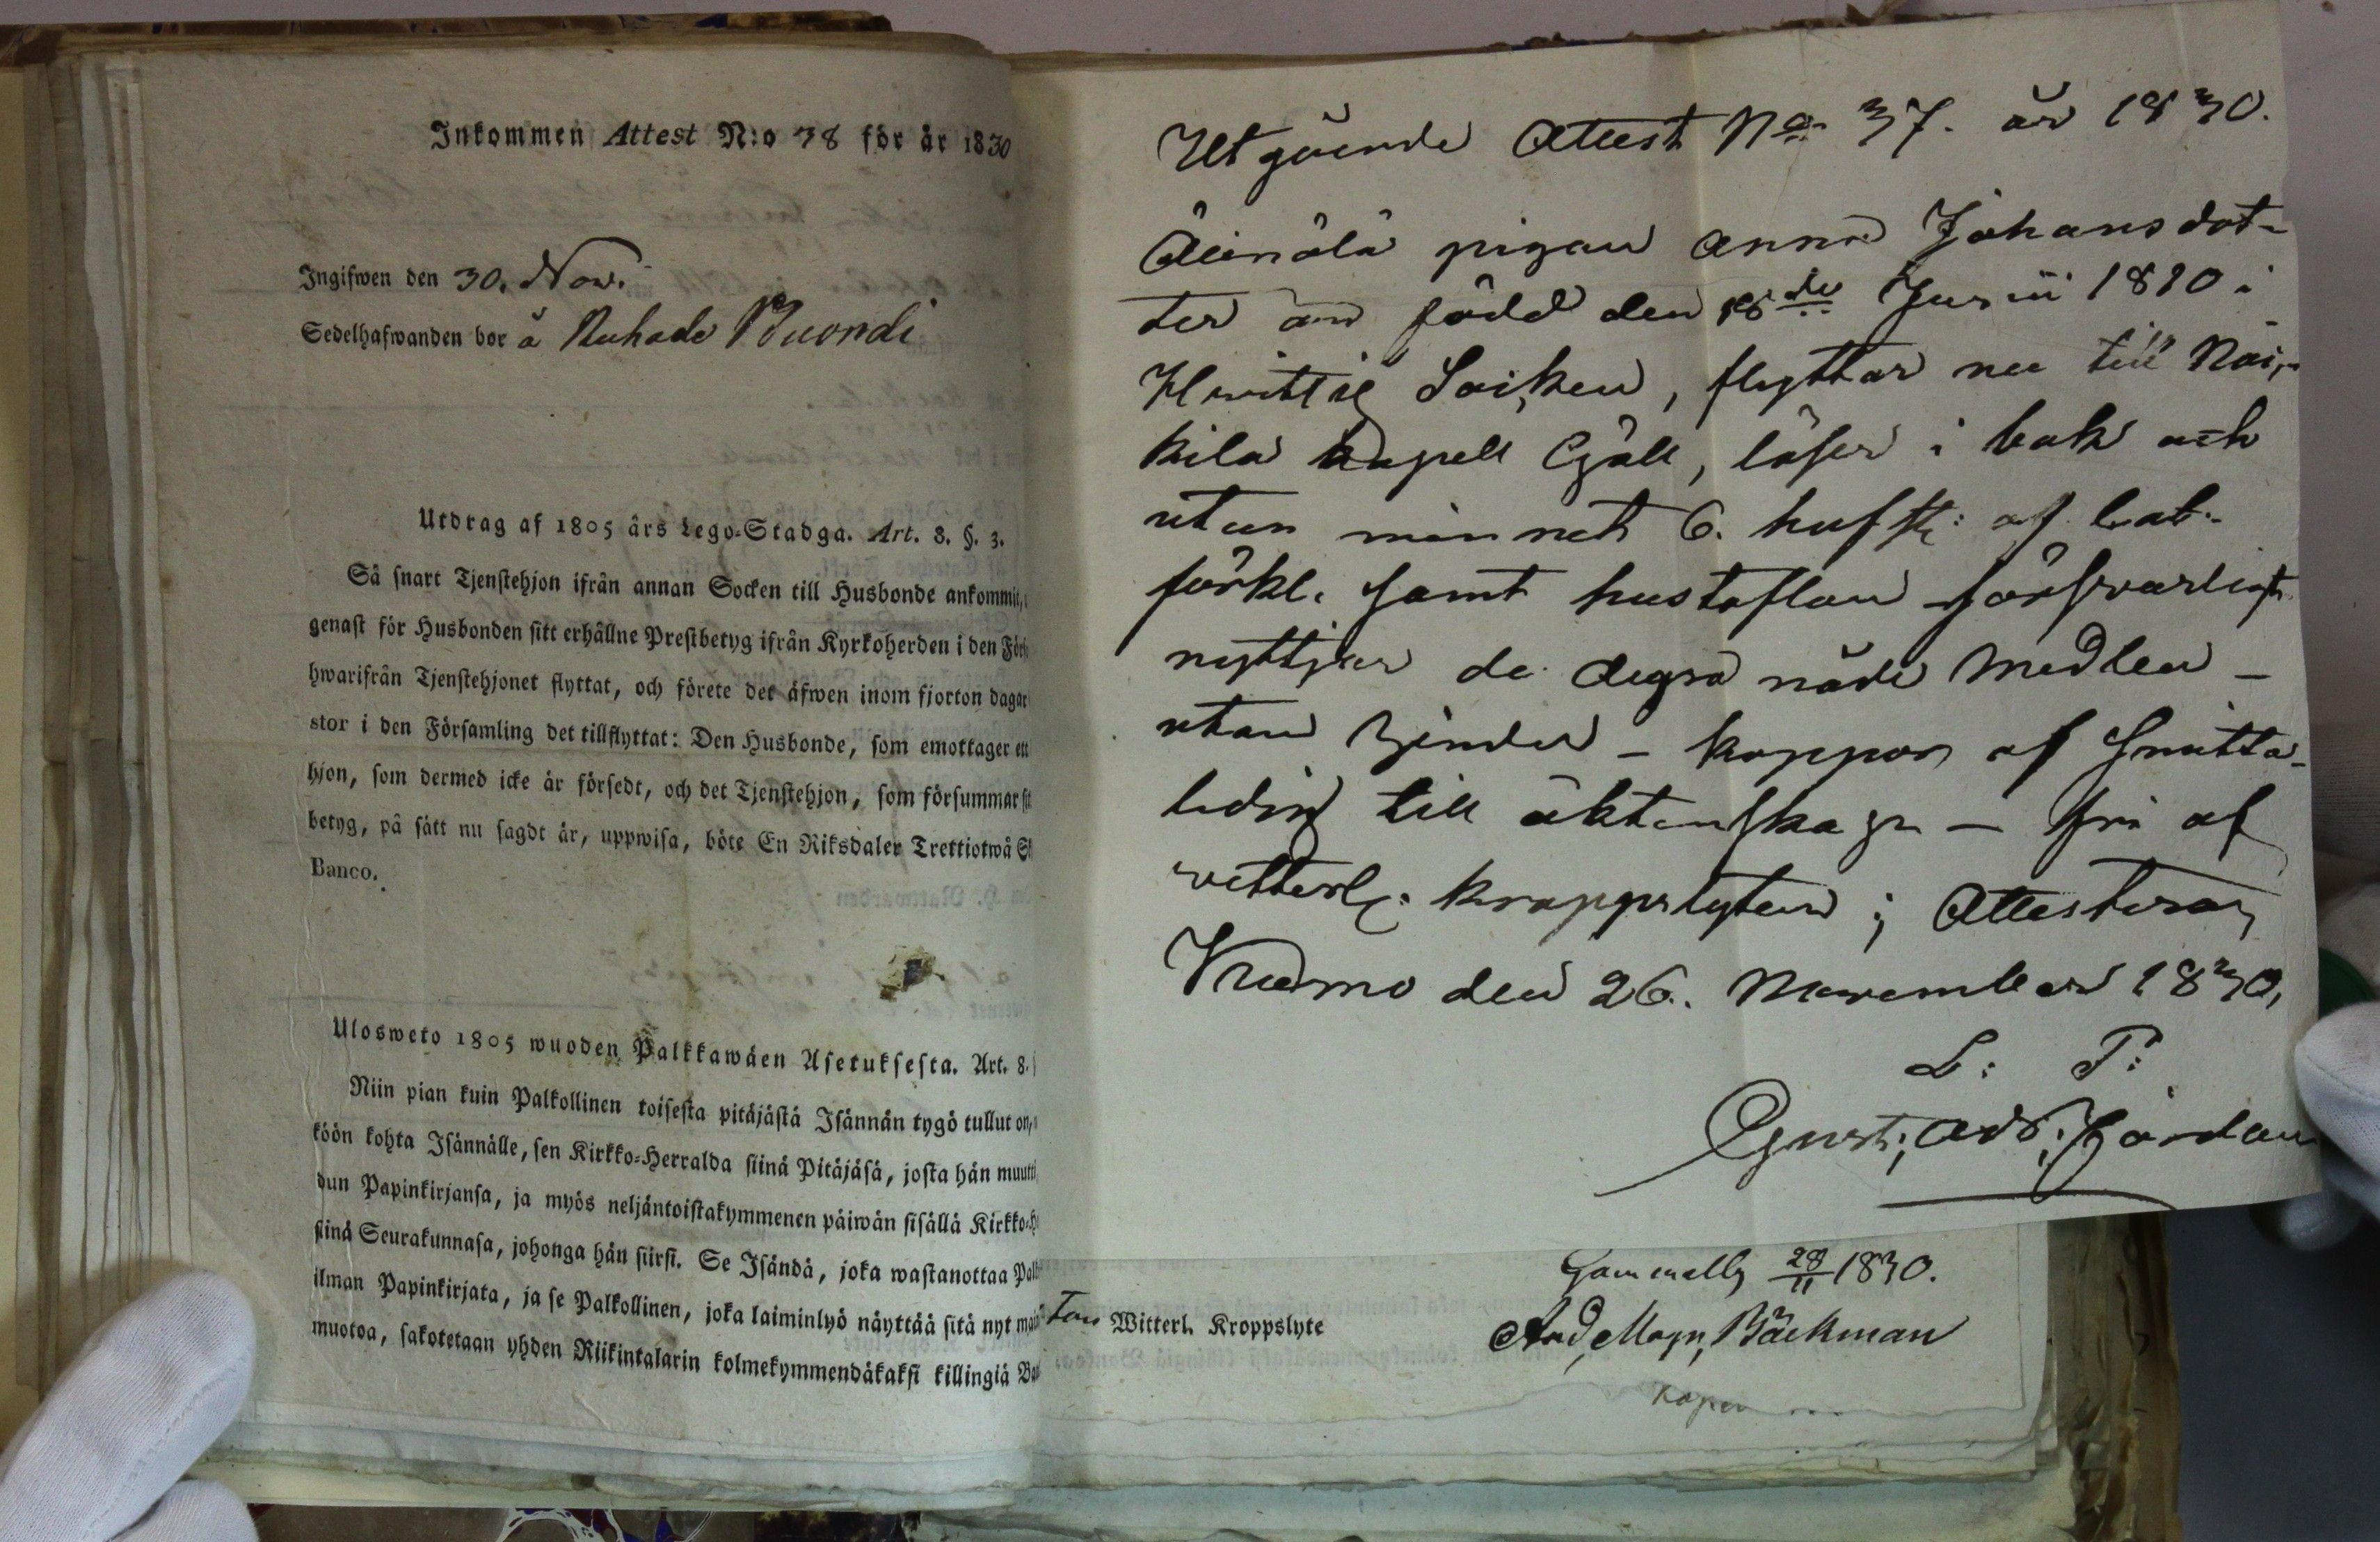 Inkommen Attest N:o 38 för år 1830
Ingifwen den 30. Nov.
Sedelhafwanden bor å Ruhade Buondi
Utdrag af 1805 års Lego-Stadga. Art. 8. §. 3.
Så snart Tjenstehjon ifrån annan Socken till Husbonde ankommit,
genast för Husbonden sitt erhållne Prestbetyg ifrån Kyrkoherden i den För
hwarifrån Tjenstehjonet flyttat, och förete det äfwen inom fjorton dagar
stor i den Församling det tillflyttat: Den Husbonde, som emottager ett
hjon, som dermed icke är försedt, och det Tjenstehjon, som försummar sit
betyg, på sätt nu sagdt är, uppwisa, böte En Riksdaler Trettiotwå S
Banco.
Ulosweto 1805 wuoden Palkkawäen Asetuksesta. Art. 8.
Niin pian kuin Palkollinen toisesta pitäjästä Isännän tygö tullut on,
köön kohta Isännälle, sen Kirkko-Herralda siinä Pitäjäsä, josta hän muutti
dun Papinkirjansa, ja myös neljäntoistakymmenen päiwän sisällä Kirkko-H
siinä Seurakunnasa, johonga hän siirsi. Se Isändä, joka wastanottaa Pal
ilman Papinkirjata, ja se Palkollinen, joka laiminlyö näyttää sitä nyt mai
muotoa, sakotetaan yhden Riikintalarin kolmekymmendäkaksi killingiä Ba
Utgående Attest No 37. år 1830.
pigan Anna Johansdot-
ter är född den 18de Junii 1810 i
Hwittis Socken, flyttar nu till Kåi-
kila kapell Gjäll, läser i bok och
utan minnet 6. hufst: af Cat.
förkl. samt hustaflan försvarligt
nyttjar de dyra nåde medlen –
utan hinder – koppor af Smitta
ledig till äktenskap – fri af
vitterl: kroppslyten; Attesterar
Kiumo den 26. November 1830,
L: P:
Gust: Adr: Hjordan
ton Witterl. Kroppslyte
Gammelby 28/11 1830.
And, Magn, Bäckman